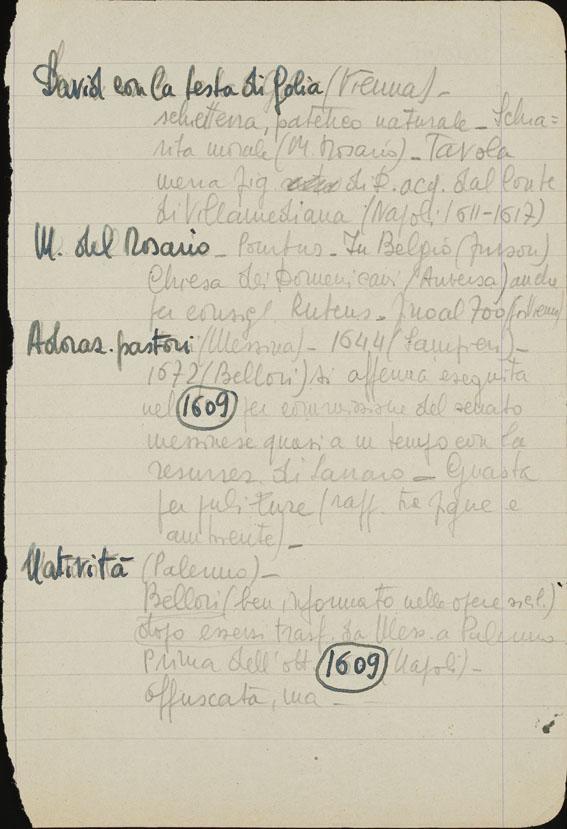 David con la testa di Golia (Vienna) -
schiettezza, patetico naturale - Schia=
rita morale (M. Rosario) - Tavola
mezza fig. di C. acq. dal Conte
di Villamediana (Napoli 1611-1617)
M. del Rosario - Pourbus - In Belgio (Finson)
Chiesa dei Domenicani (Anversa) anche
per consigl. Rubens - Fino al 700 (Vienna)
Adoraz. pastori (Messina) - 1644 (Samperi) -
1672 (Bellori) si afferma eseguita
nel 1609 per commissione del senato
messinese quasi a un tempo con la
resurrez. di Lazzaro - Guasta
per puliture (raff. tra figure e
ambiente) -
Natività (Palermo) -
Bellori (ben informato nelle opere sicil.)
dopo essersi trasf. da Mess. a Palermo
Prima dell'ott. 1609 (Napoli) -
offuscata, ma -